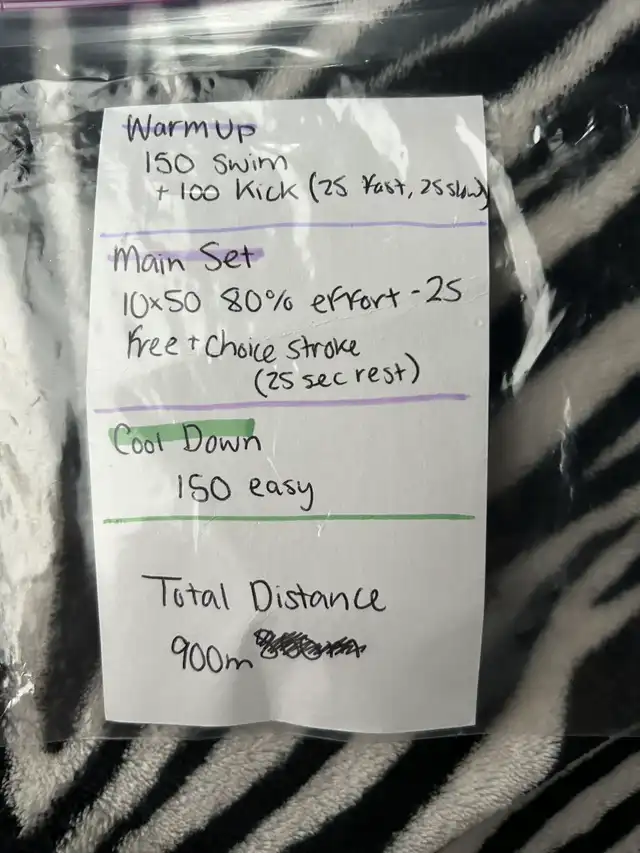 Warm Up
150 Swim
+ 100 Kick (25 fast, 25 slow)
Main Set
10x50 80% effort - 25
free + choice stroke
(25 sec rest)
Cool Down
150 easy
Total Distance
900m